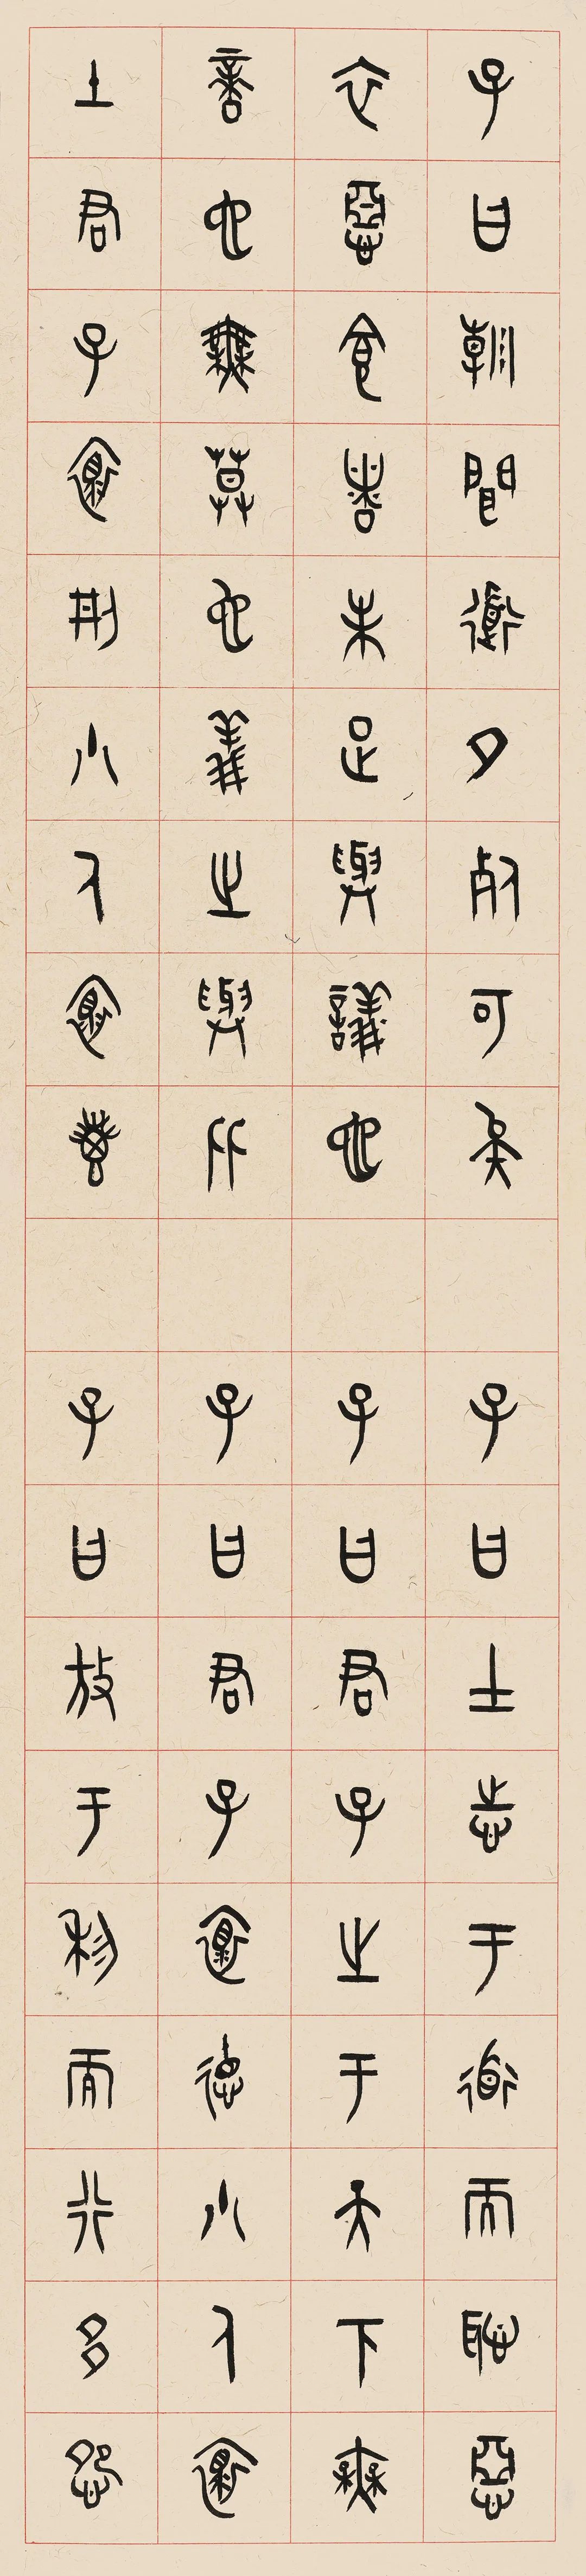 子曰朝聞道夕死可矣 子曰士志于道而恥惡
衣惡食者未足與議也 子曰君子之于天下無
適也無莫也義之與比 子曰君子懷德小人懷
土君子懷刑小人懷惠 子曰放于利而行多怨